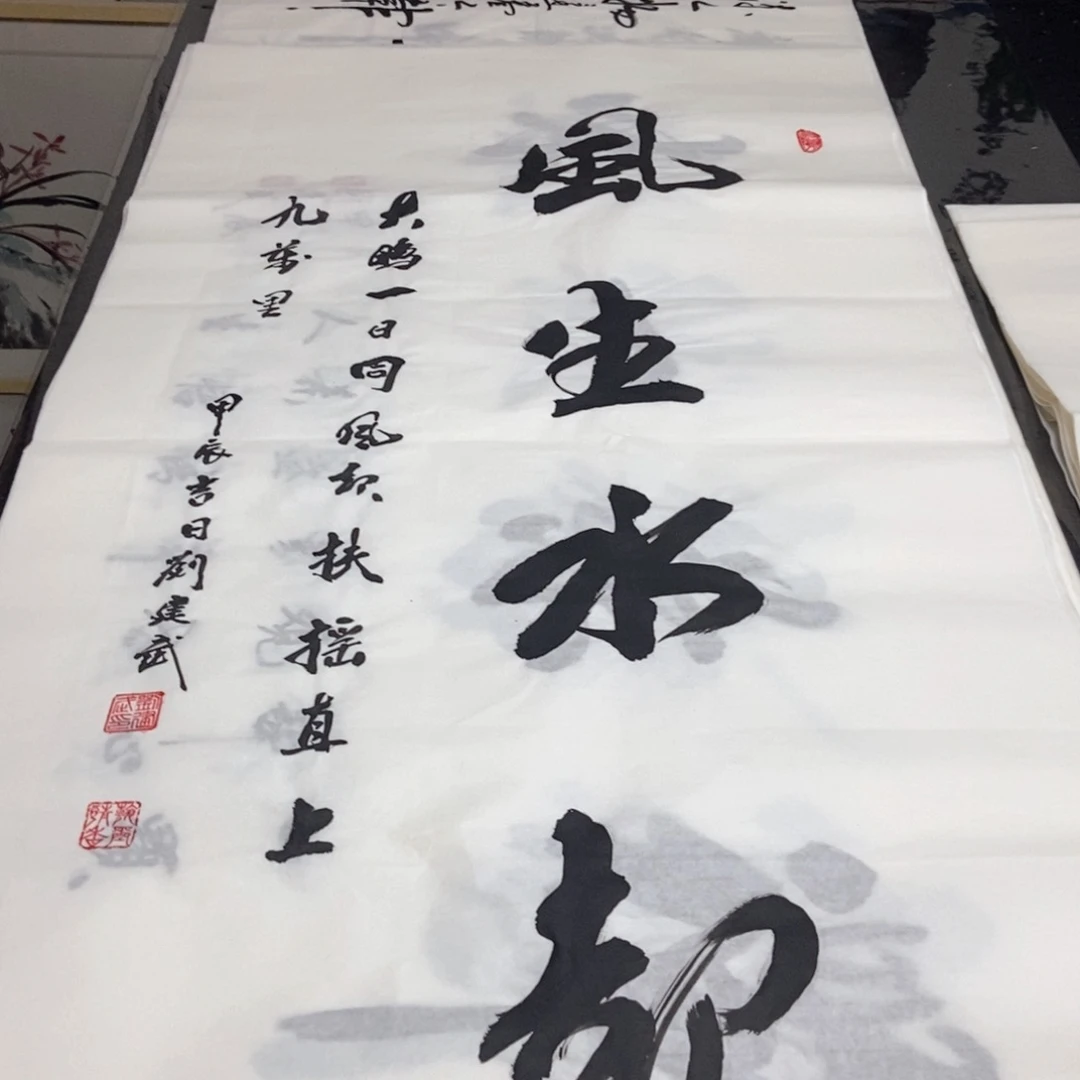 風生水起
大鵬一日同風起扶摇直上
九萬里
甲辰吉日劉建武